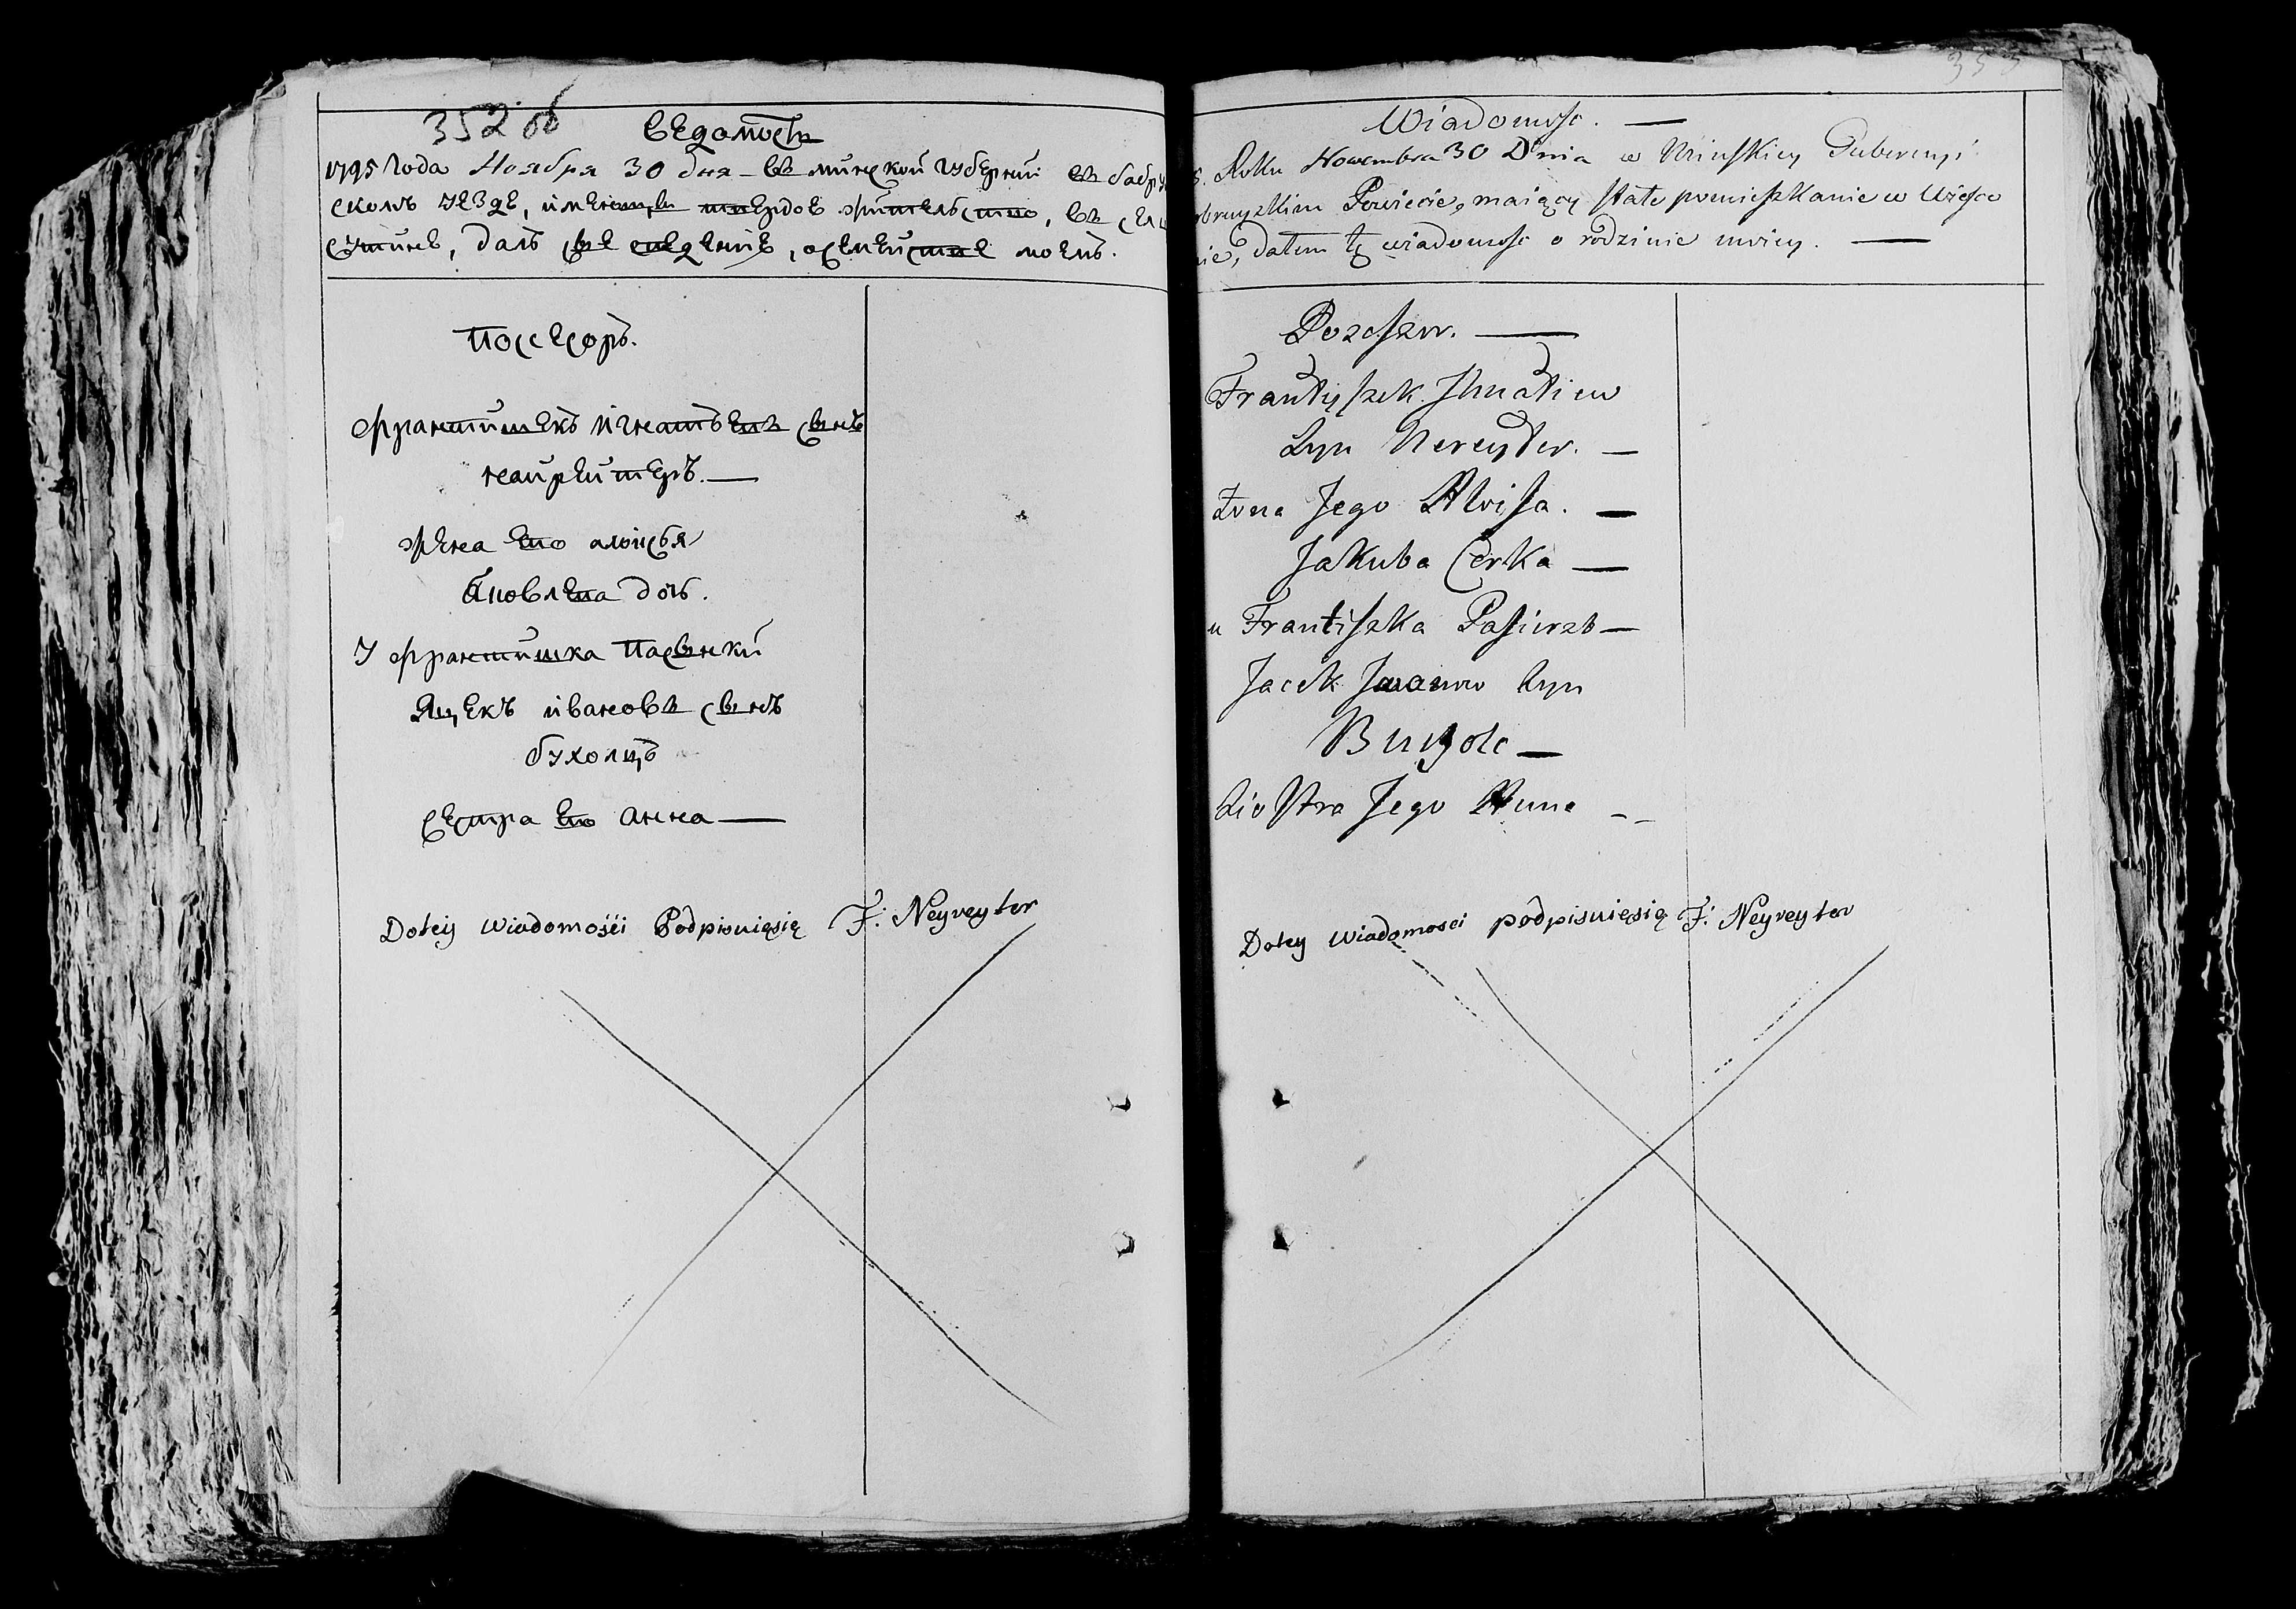 352 об
Ведомость
1795 Года Ноября 30 дня въ минской губернии въ бабру
скомъ уезде, имеющи твердое жительство, въ
далъ сие сведение, о семействе моемъ.
Посесоръ.
Франтишекъ Игнатьевъ сынъ
Найрейтеръ.
жена ево алоисья
Яковлева дочь.
У франтишка Пасынки
Яцекъ ивановъ сынъ
бухолцъ
сестра ево анна
Dotey Wiadomości Podpisuięsię F: Neyreyter
353
Wiadomosc.
5. Roku Nowembra 30 Dnia w Minskiey Gubernyi
obruyskim Powiecie, maiący stałe pomieszkanie w
nie, dałem tę wiadomosc o rodzinie moiey.
Pozeszor.
Frantiszek Ihnatiew
Syn Nereyter.
Żona Jego Aloisa.
Jakuba Cerka
u Frantiszka Pasierzb
Jacek Jwanow Syn
Buholc
Siostra Jego Anna
Dotey Wiadomosci podpisuięsię F: Neyreyter